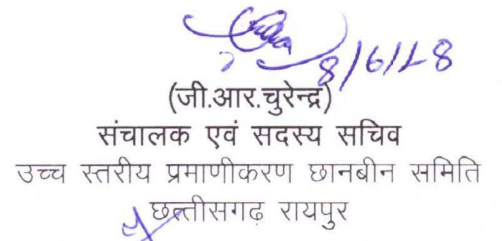 8/6/18
(जी.आर.चुरेन्द्र)
संचालक एवं सदस्य सचिव
उच्च स्तरीय प्रमाणीकरण छानबीन समिति
छत्तीसगढ़ रायपुर